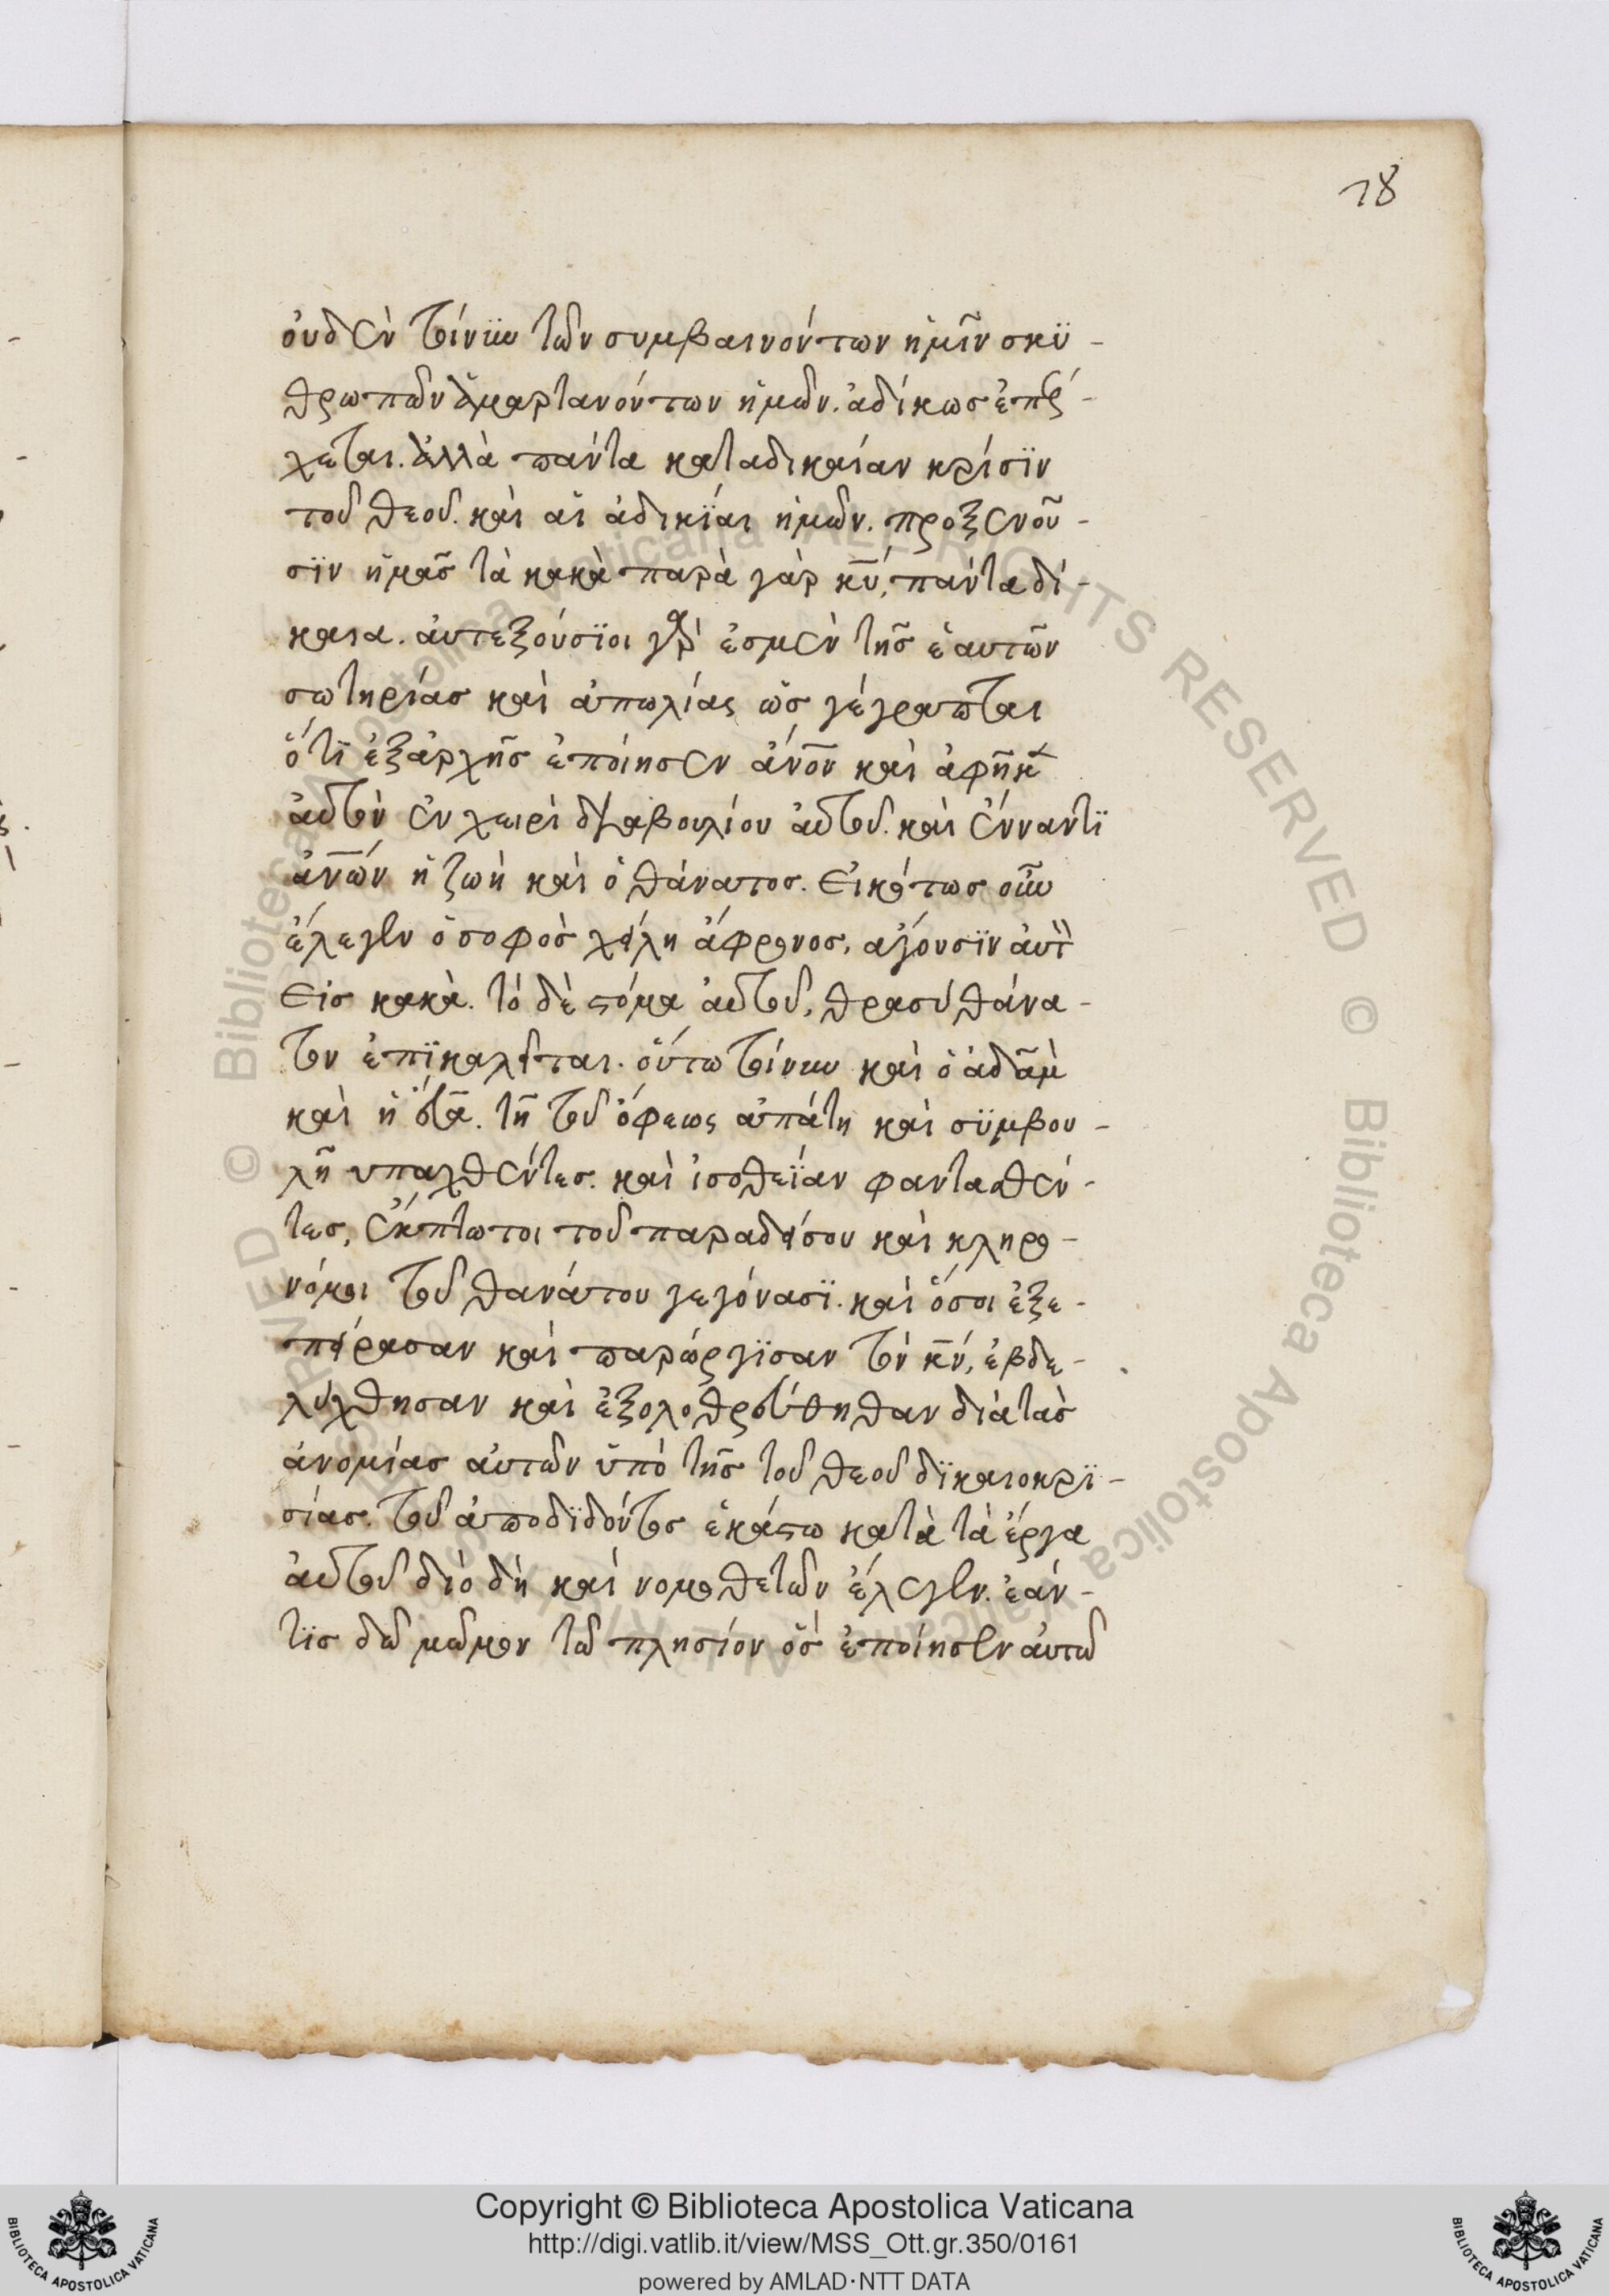 18
οὐδὲν τοίνϋν τῶν συμβαινόντων ἡμῖν σκϋ-
θρωπῶν ἁμαρτανόντων ἡμῶν. ἀδίκως ἐπέρ-
χεται. ἀλλὰ πάντα καταδικαίαν κρίσϊν
τοῦ θεοῦ. καὶ αἱ ἀδικΐαι ἡμῶν. προξενοῦ-
σϊν ἡμᾶσ τὰ κακὰ παρὰ γὰρ κῡ, πάντα δί-
καια. ἀυτεξούσϊοι γὰρ ἐσμὲν τῆσ ἑαυτῶν
σωτηρίασ καὶ ἀπωλίας ὡσ γέγραπται
ὅτϊ ἐξἀρχῆσ ἐποίησεν ἄν̅ο̅ν καὶ ἀφῆκεν
ἀυτὸν ἐν χειρὶ διαβουλίου ἀυτοῦ. καὶ ἔνναντϊ
ἀν̅ω̅ν ἡ ζωὴ καὶ ὁ θάνατοσ. Εἰκότωσ οὖν
ἔλεγεν ὁ σοφὸσ χείλη ἄφρονοσ, αγουσϊν ἀυτὸν
Εἰσ κακὰ. τὸ δὲ στόμα ἀυτοῦ, θρασὺ θάνα-
τον ἐπϊκαλεῖται. οὕτω τοίνυν καὶ ὁ ἀδὰμ
καὶ ἡ ἔυα. τῆ τοῦ ὄφεως ἀπάτη καὶ σϋμβου-
λῆ υπαχθέντεσ. καὶ ἰσοθεΐαν φαντασθέν-
τεσ, ἔκπτωτοι τοῦ παραδείσου καὶ κληρο-
νόμοι τοῦ θανάτου γεγόνασϊ. καὶ ὅσοι ἐξε-
πείρασαν καὶ παρώργϊσαν τὸν κ̅ν, ἐβδε-
λύχθησαν καὶ ἐξολοθρεύθηθαν διὰτὰσ
ἀνομίασ ἀυτῶν ὑπὸ τῆσ τοῦ θεοῦ δϊκαιοκρϊ-
σίασ. τοῦ ἀποδϊδόντοσ ἑκάστω κατὰ τὰ ἔργα
ἀυτοῦ διὸ δὴ καὶ νομοθετῶν ἔλεγεν. ἐάν-
τϊσ δῶ μῶμον τῶ πλησίον ὁσ ἐποίησεν ἀυτῶ
Copyright © Biblioteca Apostolica Vaticana
http://digi.vatlib.it/view/MSS_Ott.gr.350/0161
powered by AMLAD·NTT DATA